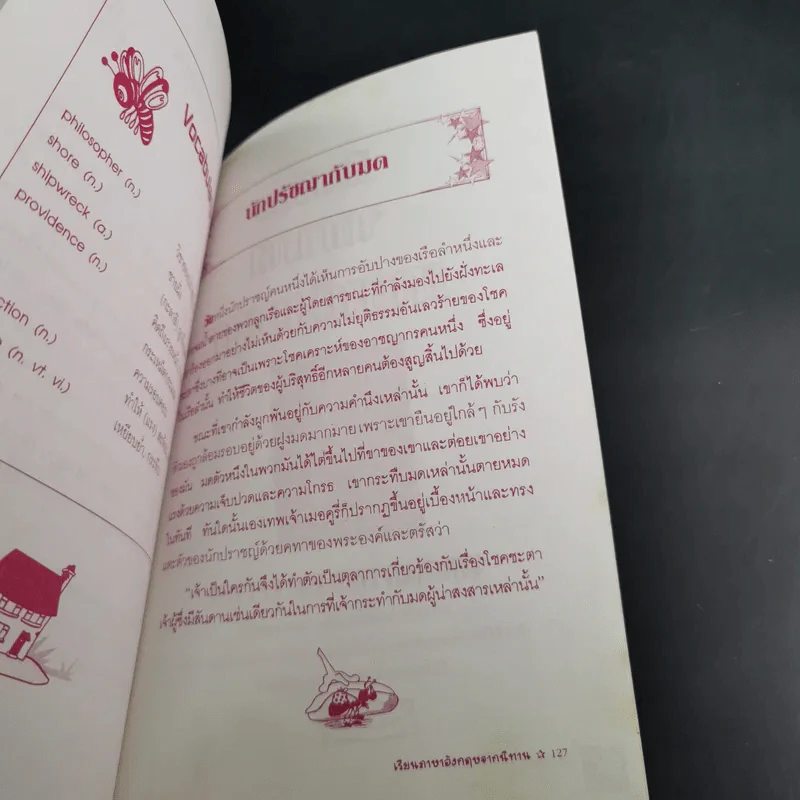 Vocabu
philosopher (n.)
shore (n.)
shipwreck (a.)
providence (n.)
ction (n.)
(n. vt. vi.)
นักปรัชญากับมด
นักปราชญ์คนหนึ่งได้เห็นการอับปางของเรือลำหนึ่งและ
ของพวกลูกเรือและผู้โดยสารขณะที่กำลังมองไปยังฝั่งทะเล
ออกมาอย่างไม่เห็นด้วยกับความไม่ยุติธรรมอันเลวร้ายของโชค
ซึ่งบางทีอาจเป็นเพราะโชคเคราะห์ของอาชญากรคนหนึ่ง ซึ่งอยู่
ทำให้ชีวิตของผู้บริสุทธิ์อีกหลายคนต้องสูญสิ้นไปด้วย
ขณะที่เขากำลังผูกพันอยู่กับความคำนึงเหล่านั้น เขาก็ได้พบว่า
ถูกล้อมรอบอยู่ด้วยฝูงมดมากมาย เพราะเขายืนอยู่ใกล้ๆ กับรัง
ของมัน มดตัวหนึ่งในพวกมันได้ไต่ขึ้นไปที่ขาของเขาและต่อยเขาอย่าง
แรงด้วยความเจ็บปวดและความโกรธ เขากระทืบมดเหล่านั้นตายหมด
ในทันที ทันใดนั้นเองเทพเจ้าเมอคูรี่ก็ปรากฏขึ้นอยู่เบื้องหน้าและทรง
แตะตัวของนักปราชญ์ด้วยคทาของพระองค์และตรัสว่า
"เจ้าเป็นใครกันจึงได้ทำตัวเป็นตุลาการเกี่ยวข้องกับเรื่องโชคชะตา
เจ้าผู้ซึ่งมีสันดานเช่นเดียวกันในการที่เจ้ากระทำกับมดผู้น่าสงสารเหล่านั้น"
เรียนภาษาอังกฤษจากนิทาน ☆ 127